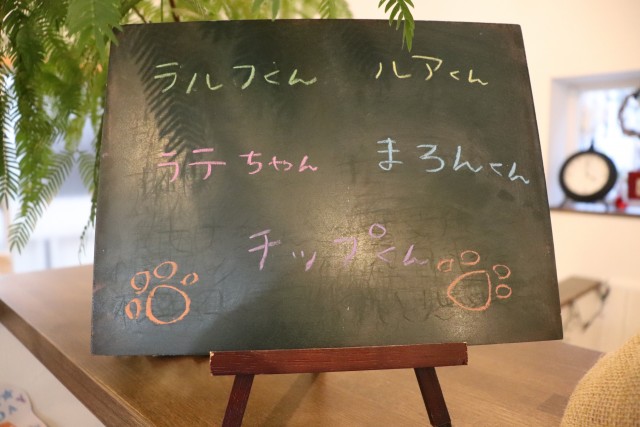 ラルフくん ルアくん
ラテちゃん まろんくん
チップくん